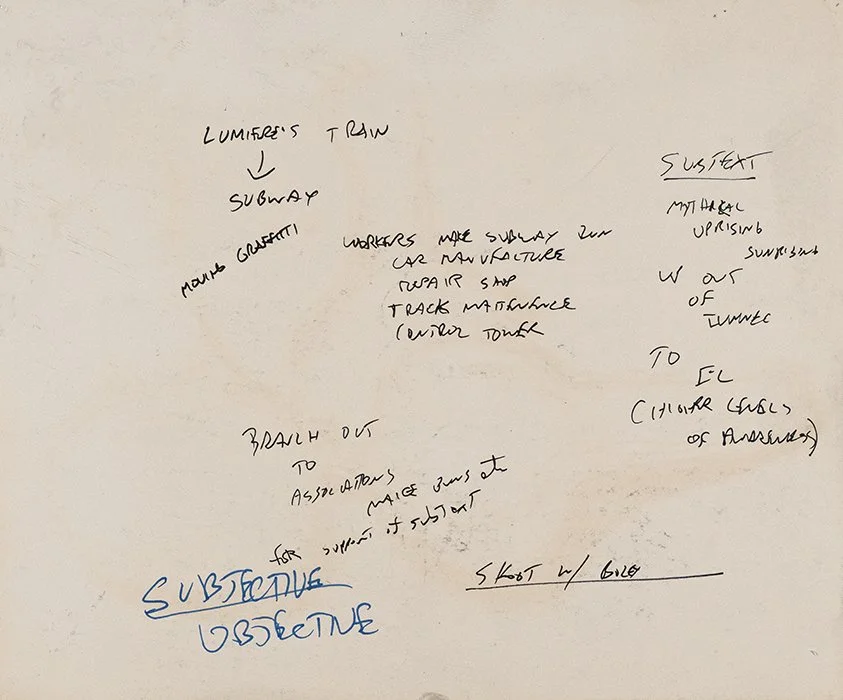 LUMIERE'S TRAIN
SUBWAY
MOVING GRAFFITI
WORKERS MAKE SUBWAY RUN
CAR MANUFACTURE
REPAIR SHOP
TRACK MAITENENCE
CONTROL TOWER
SUBTEXT
MYTHICAL
UPRISING
SUNRISING
OUT
OF
TUNNEL
TO
EL
(HIGHER LEVELS
OF AWARENESS)
BRANCH OUT
TO
ASSOCIATIONS
MAKE RUNS
FOR SUPPORT of SUBTEXT
SUBJECTIVE
OBJECTIVE
SHOOT W/